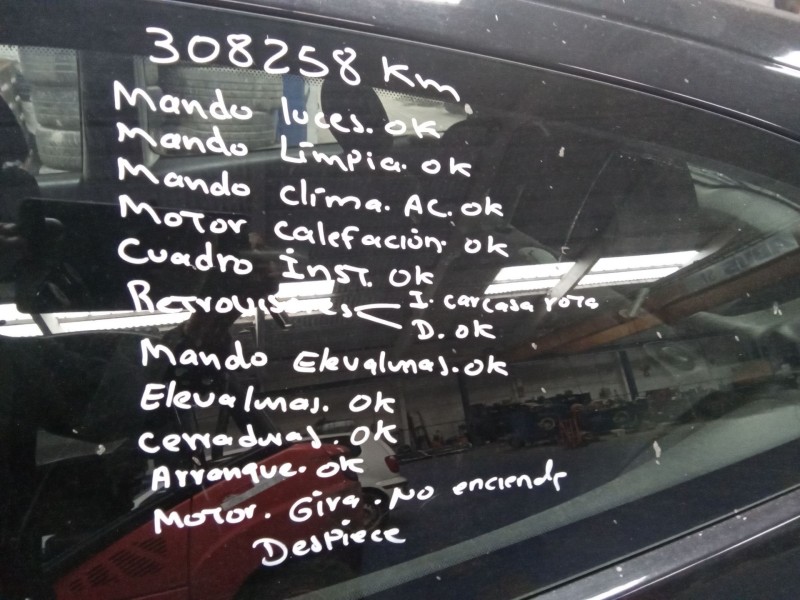 308258 Km.
Mando luces. OK
Mando Limpia. OK
Mando clima. AC. OK
Motor calefación. OK
Cuadro Inst. OK
Retrovisores < I. carcasa rota
D. OK
Mando Elevalunas. OK
Elevalunas. OK
cerraduras. OK
Arranque. OK
Motor. Gira. No enciende
Despiece